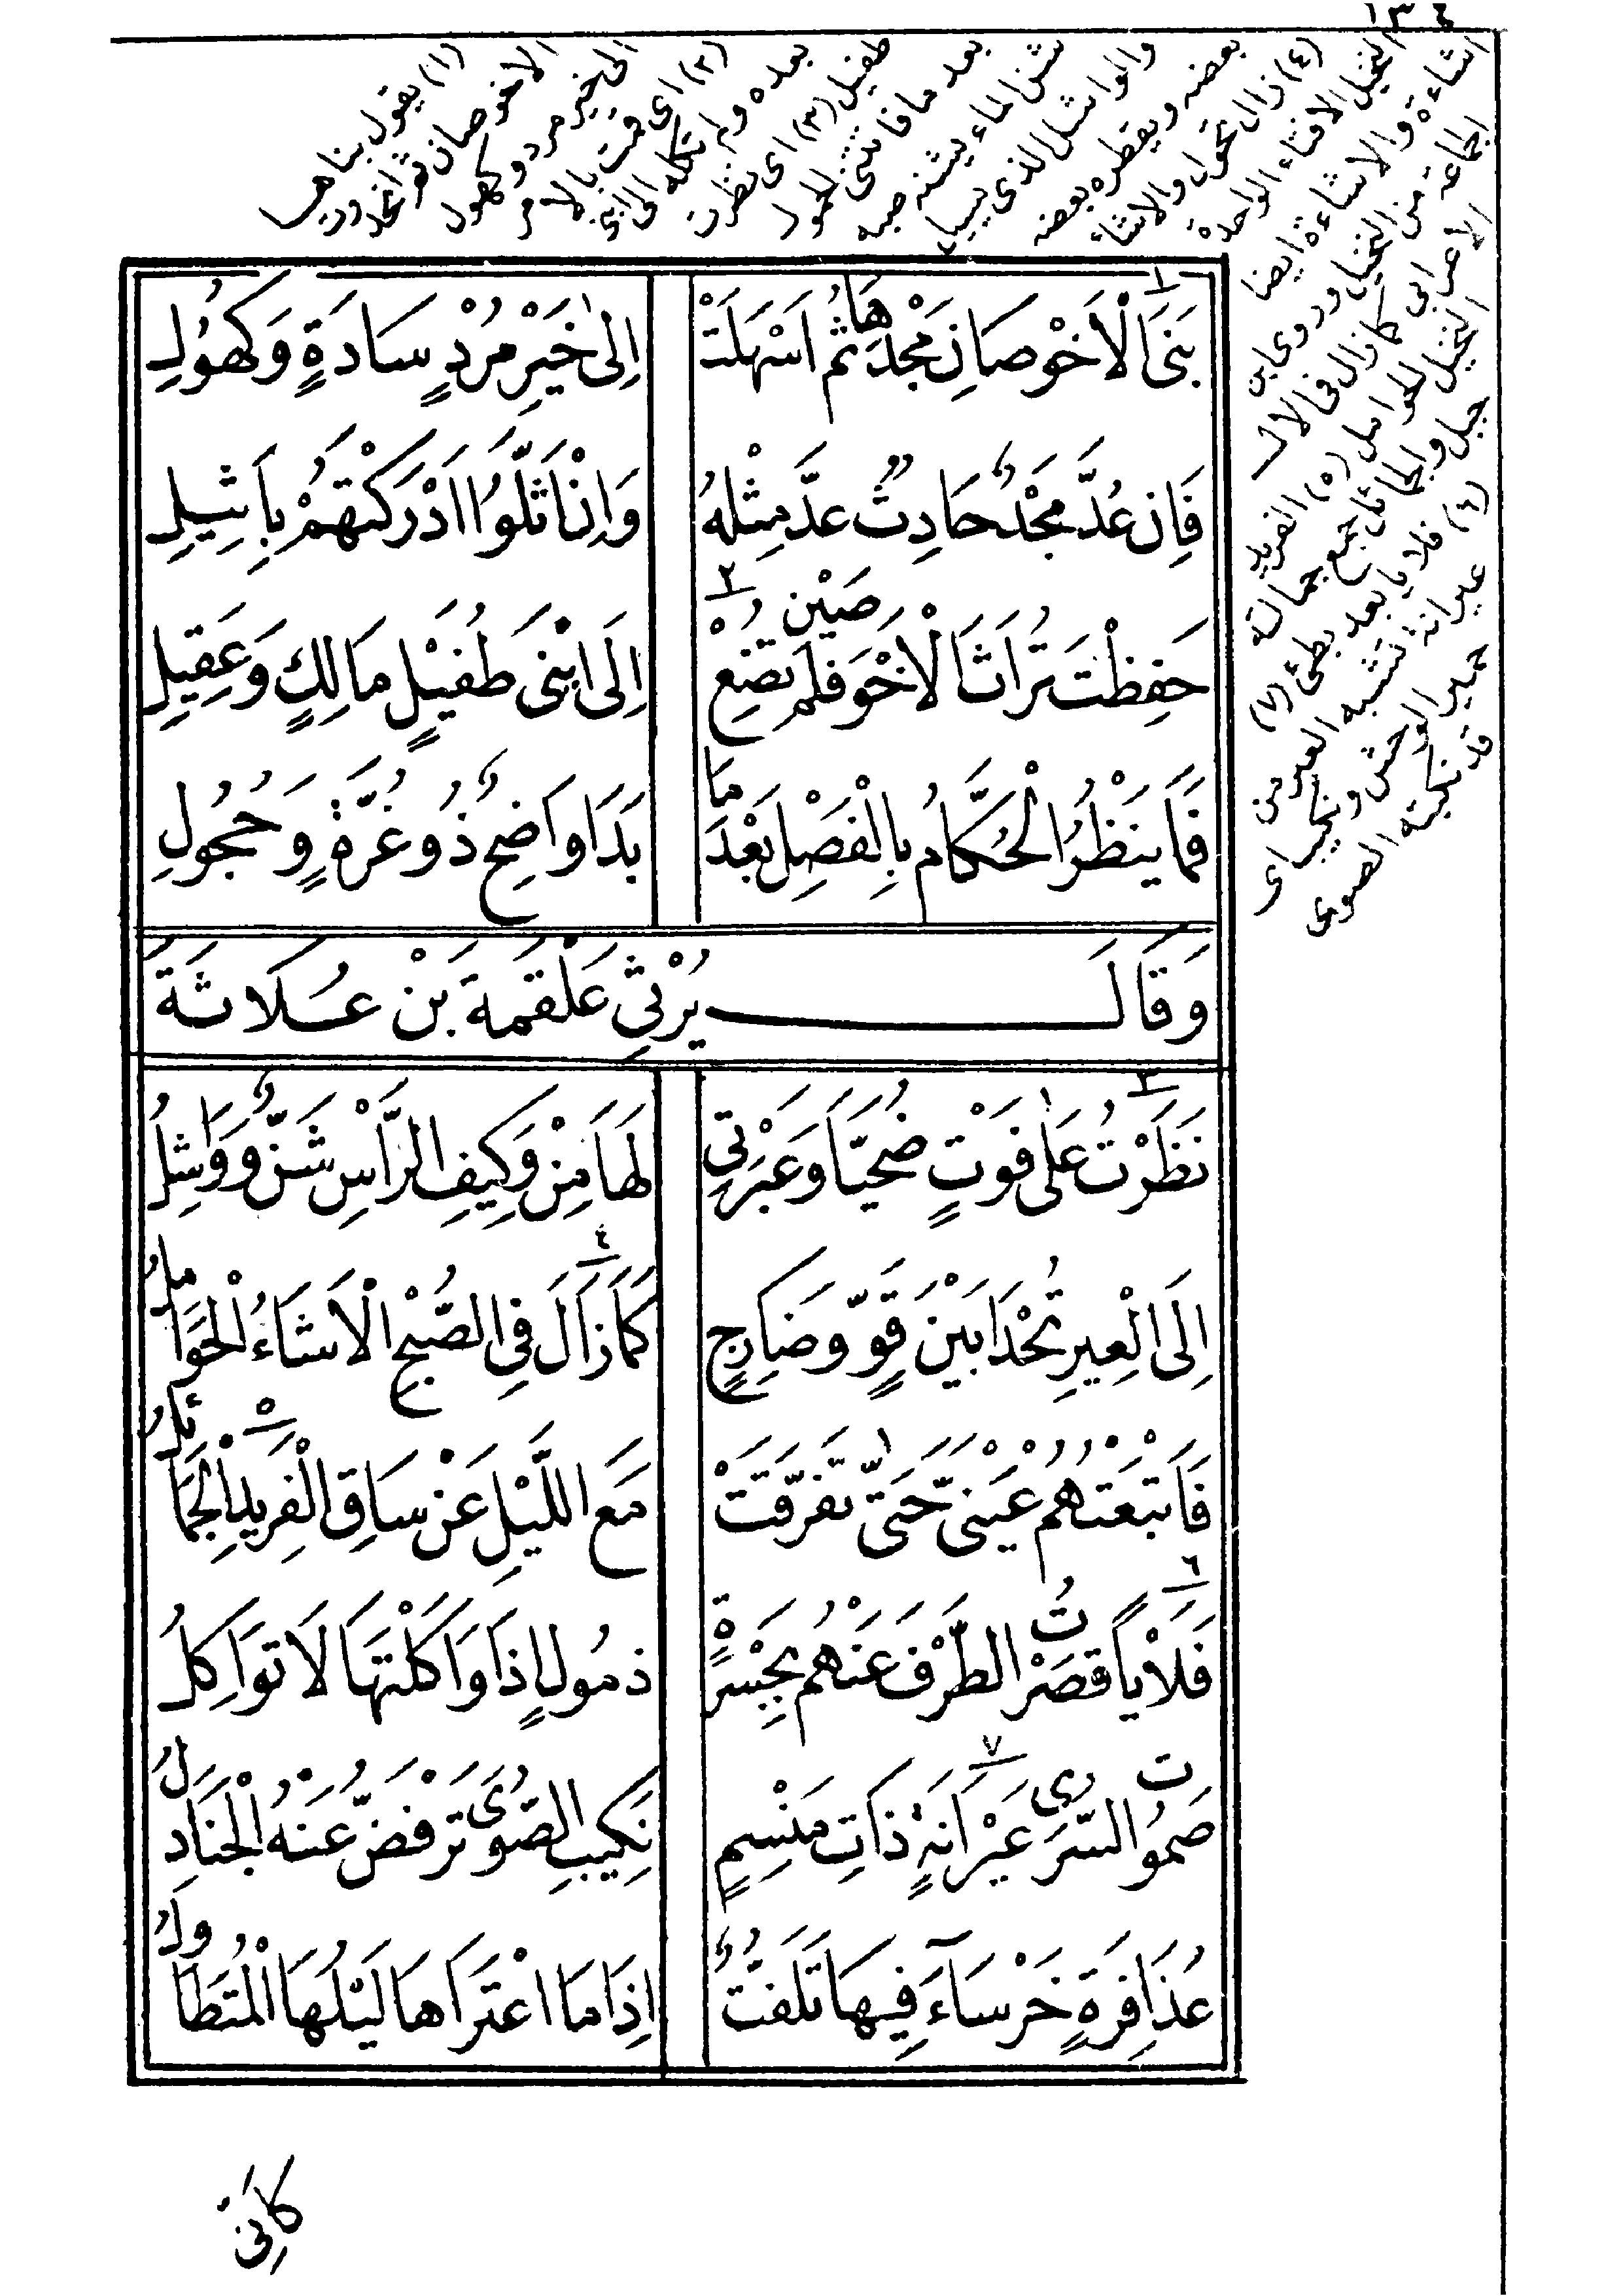 ١٣٤
(١) يقول بناها
الاخوصان ثم انحدرت
الى خير مرد وكهول
(٢) اى قمت بالامر
بعده ولم تكله الى ابنى
طفيل (٣) اى نظرت
بعد ما فاتتنى الحمول
تشن الماء يشنه صبه
والواشل الذى يسيل
بعضه ويقطره بعضه
(٤) زال تحول والاشاء
النخيل الافتاء الواحدة
اشاءة والاشاءة ايضا
الجماعة من النخيل وروى ابن
الاعرابى كما زال فى الال
النخيل الحوامل (٥) الفريد
جبل والجمائل جمع جمالة
(٦) فلايا بعد بطئى (٧)
عيرانة تشبه العير من
حمير الوحش ونكيب اى
قد نكبته الصوى
بَنَى الْاَخْوصَانِ مَجْدَهَا ثُم اَسْهَلَتْ
اِلىٰ خَيْرِ مُرْدٍ سَادَةٍ وَكهُولِ
فَاِن عُدَّ مَجْدٌ حَادِثٌ عدَّ مِثْلهُ
وَاِنْ اَثلَّوُا اَدْرَكْتهُمْ بِاَثِيلِ
حَفِظْتَ تُرَاثَ الْاخْوَصَيْن فَلم تُضِعْ
اِلَى ابْنَى طُفَيْلٍ مَالِكٍ وَعَقِيلِ
فَمَا يَنْظُرُ الْحُكَّامُ بِالْفَصْلِ بَعْدَمَا
بَدَا وَاضِحٌ ذُو غُرَّةٍ وَحُجُولِ
وَقَالَ يُرْثِى عَلْقَمةَ بْنَ عُلَاثَةَ
نَظَرْتُ عَلىٰ فَوْتٍ ضُحَيًّا وَعَبْرَتِى
لَهَا مِنْ وَكِيفِ الرَّاْسِ شَنٌّ وَوَاشِلُ
اِلَى الْعِيرِ تُحْدَا بَيْنَ قَوٍّ وَضَارِجٍ
كَمَا زَالَ فِى الصُّبْحِ الْاَشَاءُ الْحَوَامِلُ
فَاَتْبَعْتهُمْ عَيْنَىَّ حَتّىٰ تَفَرَّقَتْ
مَعَ اللَّيْلِ عَنْ سَاقِ الْفَرِيدِ الْجَمَائِلُ
فَلَاْيًا قَصَرْتُ الطَّرْفَ عَنْهُم بِجَسْرَةٍ
ذَمُولٍ اِذَا وَاكَلْتَهَا لَا تُوَاكِلُ
صَمُوتُ السُّرَى عَيْرَانَةٍ ذَاتِ مَنْسِمٍ
نَكِيبِ الصُّوَى تَرْفَضُّ عَنْهُ الْجَنَادِلُ
عُذَافِرَةٍ خَرْسَآءَ فِيهَا تَلَفُّتٌ
اِذَا مَا اعْتَرَاهَا لَيْلُهَا الْمُتَطَاوِلُ
كَاَنِّى